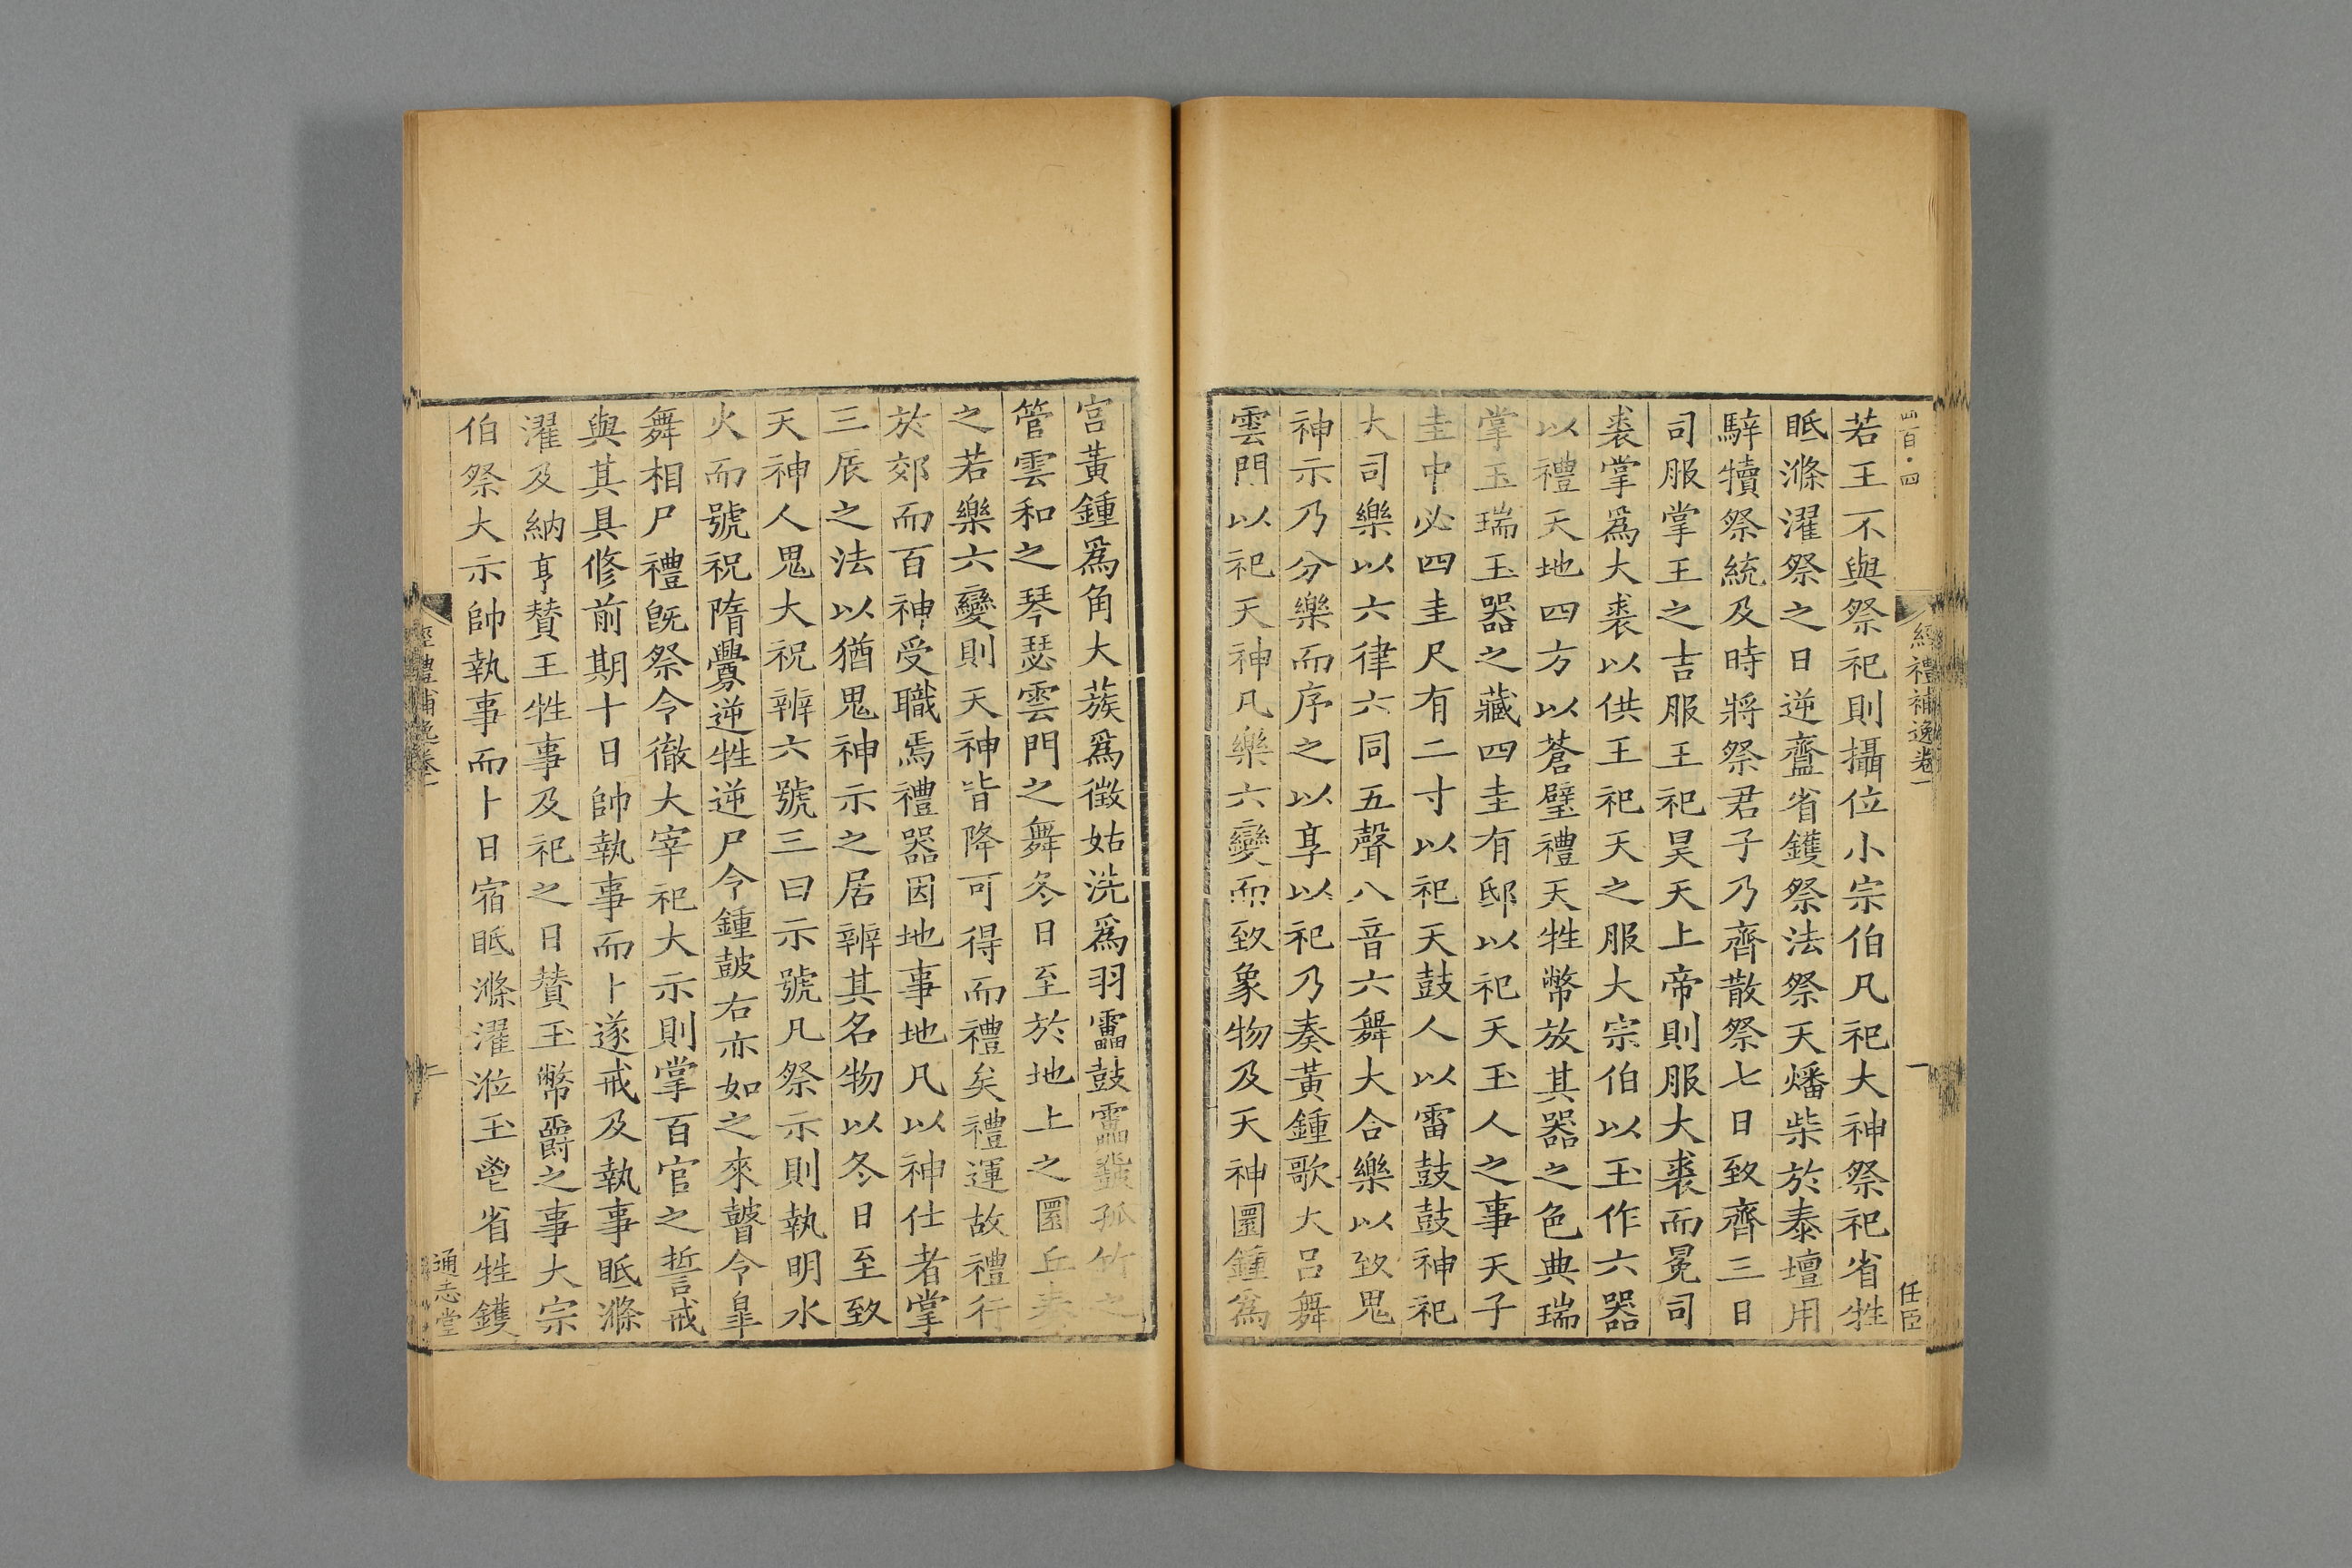 四百·四
經禮補逸卷一
一
任臣
若王不與祭祀則攝位小宗伯凡祀大神祭祀省牲
眡滌濯祭之日逆齍省鑊祭法祭天燔柴於泰壇用
騂犢祭統及時將祭君子乃齊散祭七日致齊三日
司服掌王之吉服王祀昊天上帝則服大裘而冕司
裘掌爲大裘以供王祀天之服大宗伯以玉作六器
以禮天地四方以蒼璧禮天牲幣放其器之色典瑞
掌玉瑞玉器之藏四圭有邸以祀天玉人之事天子
圭中必四圭尺有二寸以祀天鼓人以雷鼓鼓神祀
大司樂以六律六同五聲八音六舞大合樂以致鬼
神示乃分樂而序之以享以祀乃奏黃鍾歌大呂舞
雲門以祀天神凡樂六變而致象物及天神圜鍾爲
宮黃鍾爲角大蔟爲徵姑洗爲羽靁鼓靁鼗孤竹之
管雲和之琴瑟雲門之舞冬日至於地上之圜丘奏
之若樂六變則天神皆降可得而禮矣禮運故禮行
於郊而百神受職焉禮器因地事地凡以神仕者掌
三辰之法以猶鬼神示之居辨其名物以冬日至致
天神人鬼大祝辨六號三曰示號凡祭示則執明水
火而號祝隋釁逆牲逆尸令鍾鼓右亦如之來瞽令臯
舞相尸禮旣祭令徹大宰祀大示則掌百官之誓戒
與其具修前期十日帥執事而卜遂戒及執事眡滌
濯及納亨贊王牲事及祀之日贊玉幣爵之事大宗
伯祭大示帥執事而卜日宿眡滌濯涖玉鬯省牲鑊
經禮補逸卷一
二
通志堂